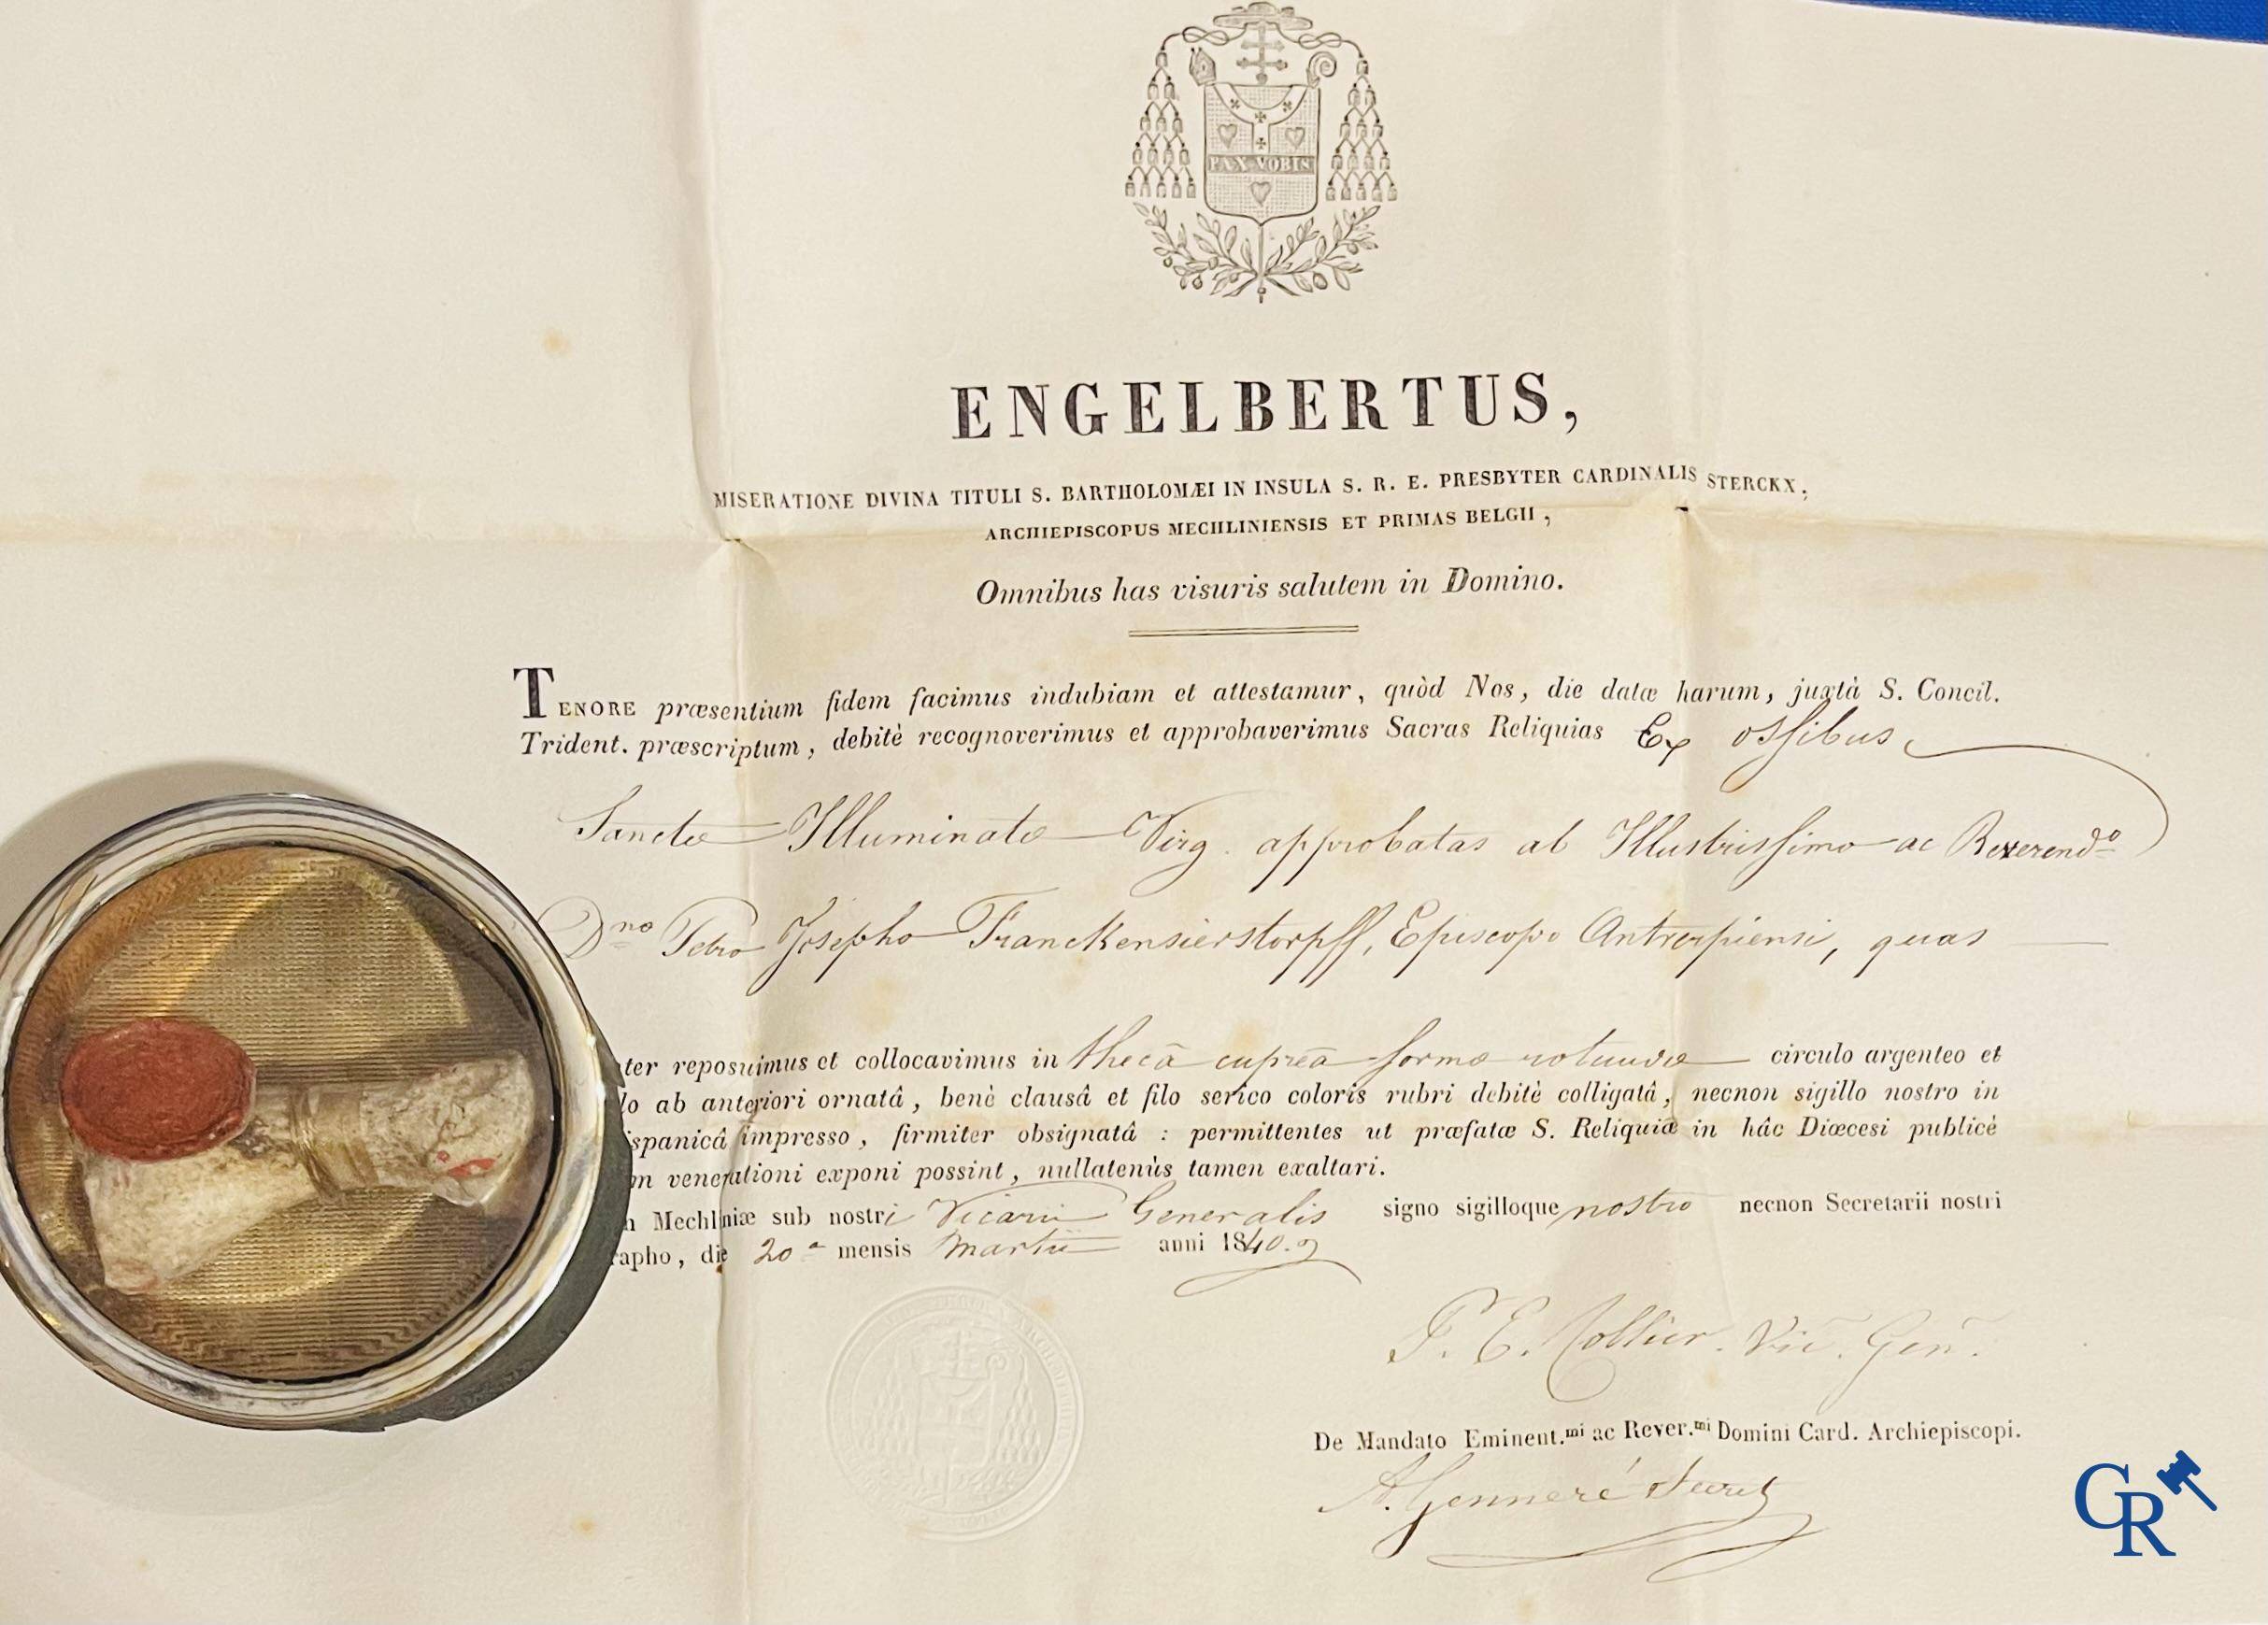 PAX VOBIS
ENGELBERTUS,
MISERATIONE DIVINA TITULI S. BARTHOLOMÆI IN INSULA S. R. E. PRESBYTER CARDINALIS STERCKX,
ARCHIEPISCOPUS MECHLINIENSIS ET PRIMAS BELGII,
Omnibus has visuris salutem in Domino.
TENORE præsentium fidem facimus indubiam et attestamur, quòd Nos, die datæ harum, juxtà S. Concil.
Trident. præscriptum, debitè recognoverimus et approbaverimus Sacras Reliquias Ex ossibus
Sanctæ Illuminatæ Virg. approbatas ab Illustrissimo ac Reverendo
Dno Petro Josepho Franckensierstorpff, Episcopo Antverpiensi, quas
ter reposuimus et collocavimus in thecâ cupreâ formæ rotundæ circulo argenteo et
lo ab anteriori ornatâ, benè clausâ et filo serico coloris rubri debitè colligatâ, necnon sigillo nostro in
ispanicâ impresso, firmiter obsignatâ : permittentes ut præfatæ S. Reliquiæ in hâc Diœcesi publicè
m venerationi exponi possint, nullatenùs tamen exaltari.
n Mechliniæ sub nostri Vicarii Generalis signo sigilloque nostro necnon Secretarii nostri
rapho, die 20a mensis Martii anni 1840.
P. E. Collier. Vic. Gen.
De Mandato Eminent.mi ac Rever.mi Domini Card. Archiepiscopi.
A. Genneré Secret
GR